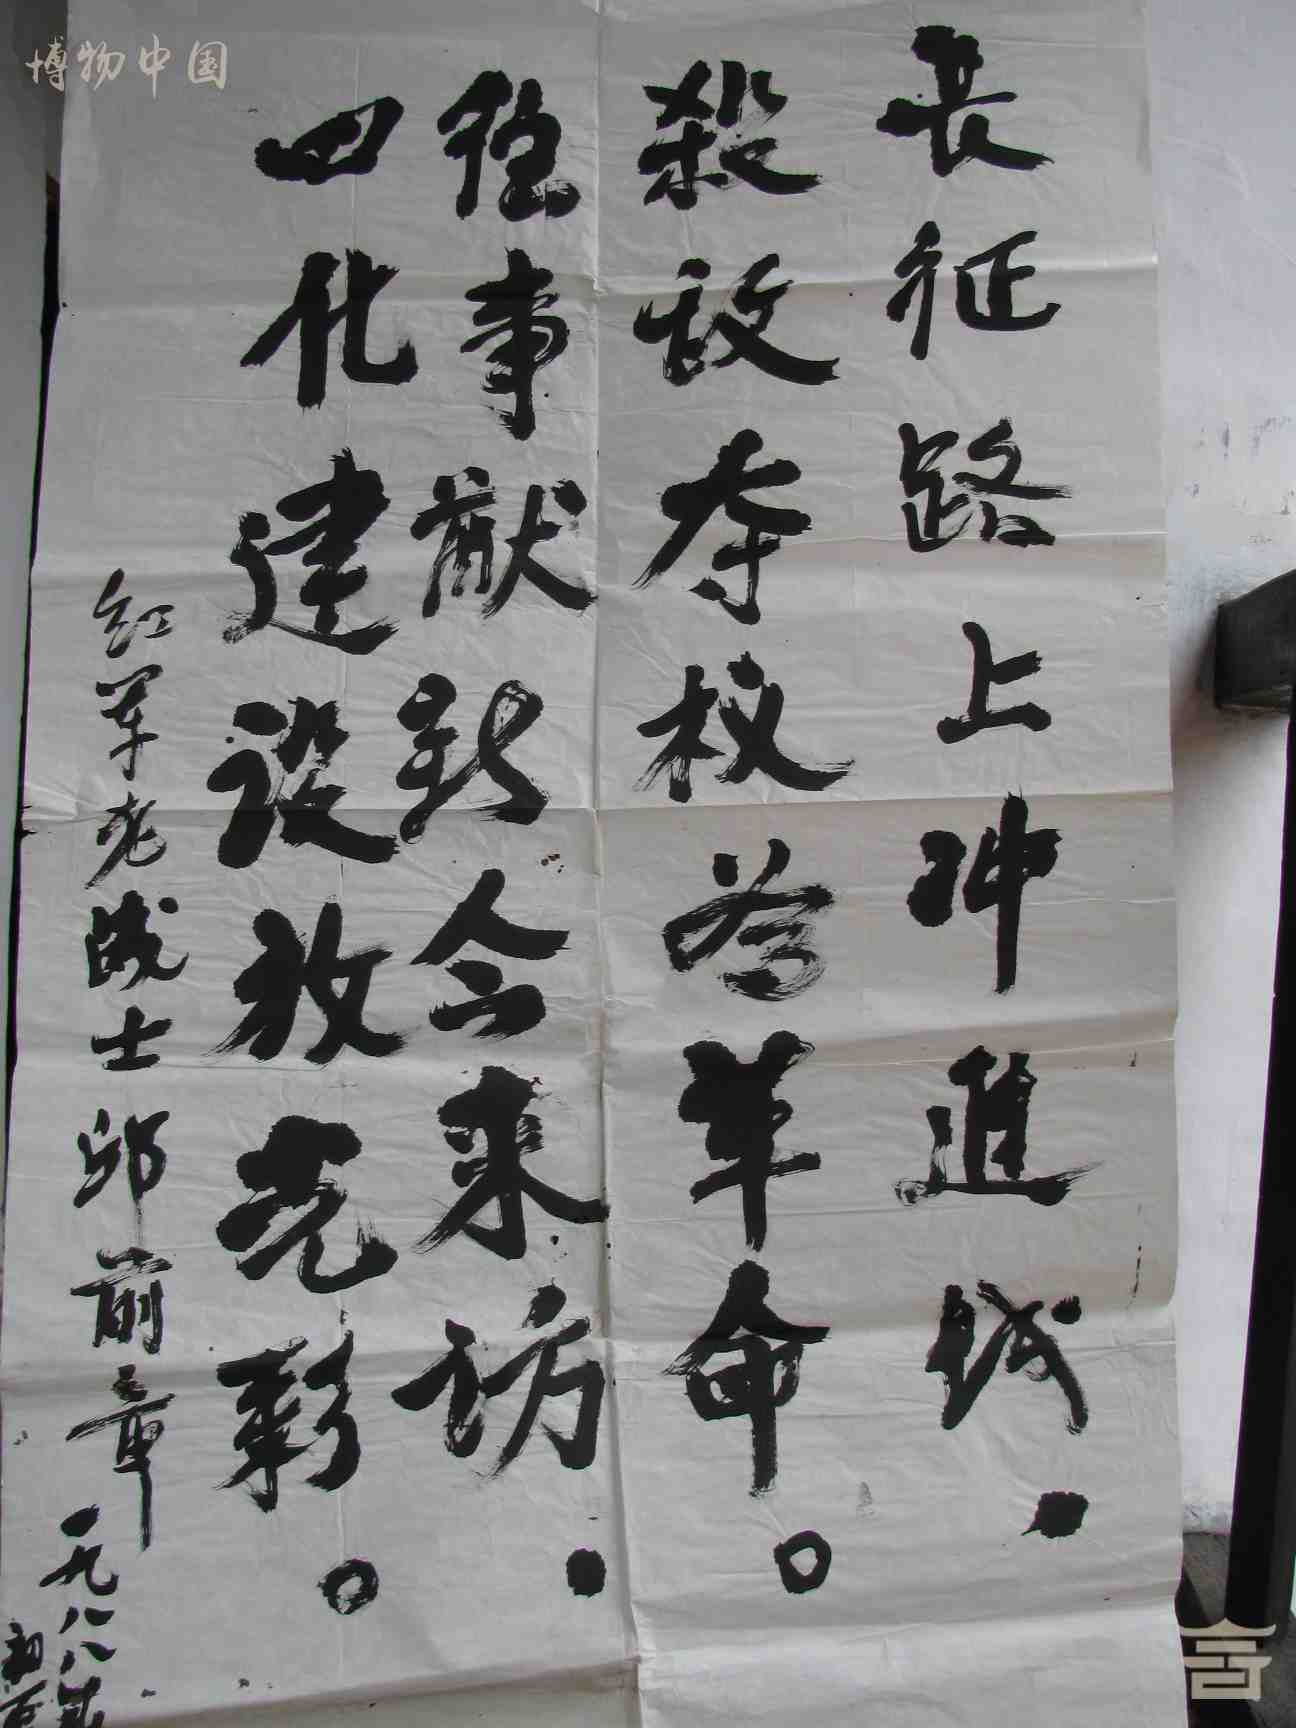 博物中国
长征路上冲进城.
殺敌夺权为革命。
往事献新今来访.
四化建设放光彩。
红军老战士邱前章一九八八年